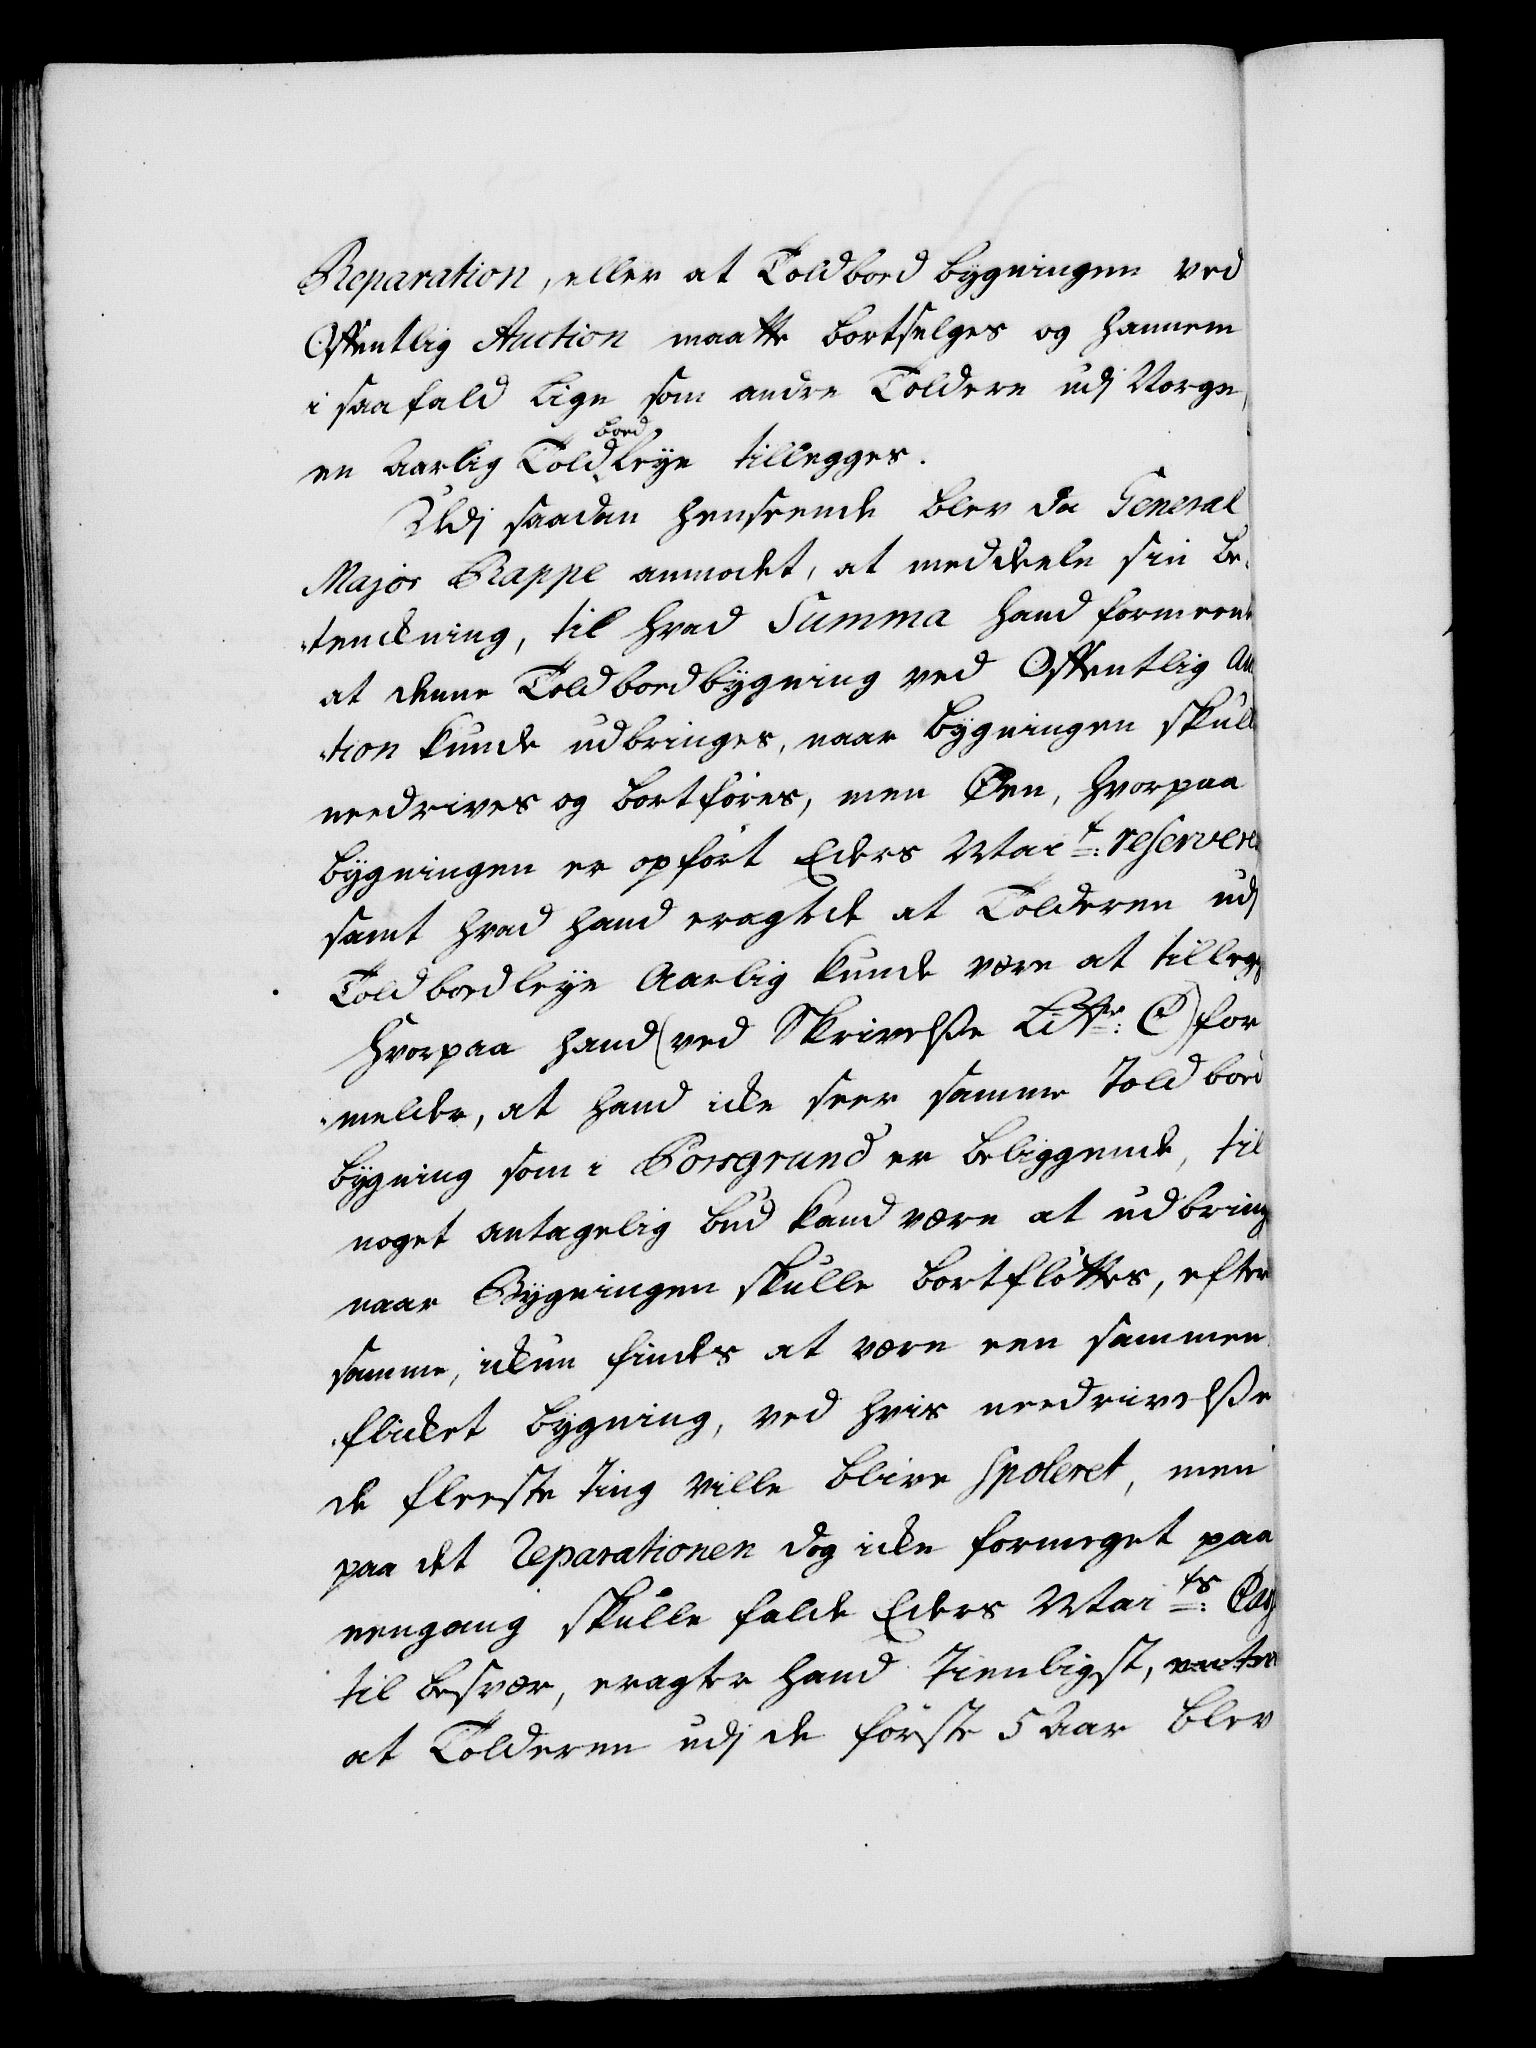 Reparation, eller at Toldboed bygningen ved
Offentlig Auction maatte bortselges og hannem
i saa fald lige som andre Toldere udj Norge,
en Aarlig Toldboedleye tillegges.
Udj saadan henseende blev da General
Major Rappe anmodet, at meddeele sin be-
tenckning, til hvad Summa hand formeente
at denne Toldboedbygning ved Offentlig Auc
tion kunde udbringes, naar bygningen skulle
needrives og bortføres, men Øen, hvorpaa
bygningen er opført Eders Mai:t reserveres
samt hvad hand eragtede at Tolderen udj
Toldboedleye Aarlig kunde være at tillegge
Hvorpaa hand (ved Skrivelsse Litr: C) for
melder, at hand icke seer samme Toldboed
bygning som i Porsgrund er beliggende, til
noget antagelig bud kand være at udbringe
naar Bygningen skulle bortfløttes, efter
samme, ickun findes at være een sammen
flicket bygning, ved hvis needrivelsse
de fleeste ting ville blive Spoleret, men
paa det Reparationen dog icke formeget paa
eengang skulle falde Eders Mai:ts
til besvær, eragter hand tienligst,
at Tolderen udj de første 5 Aar blev